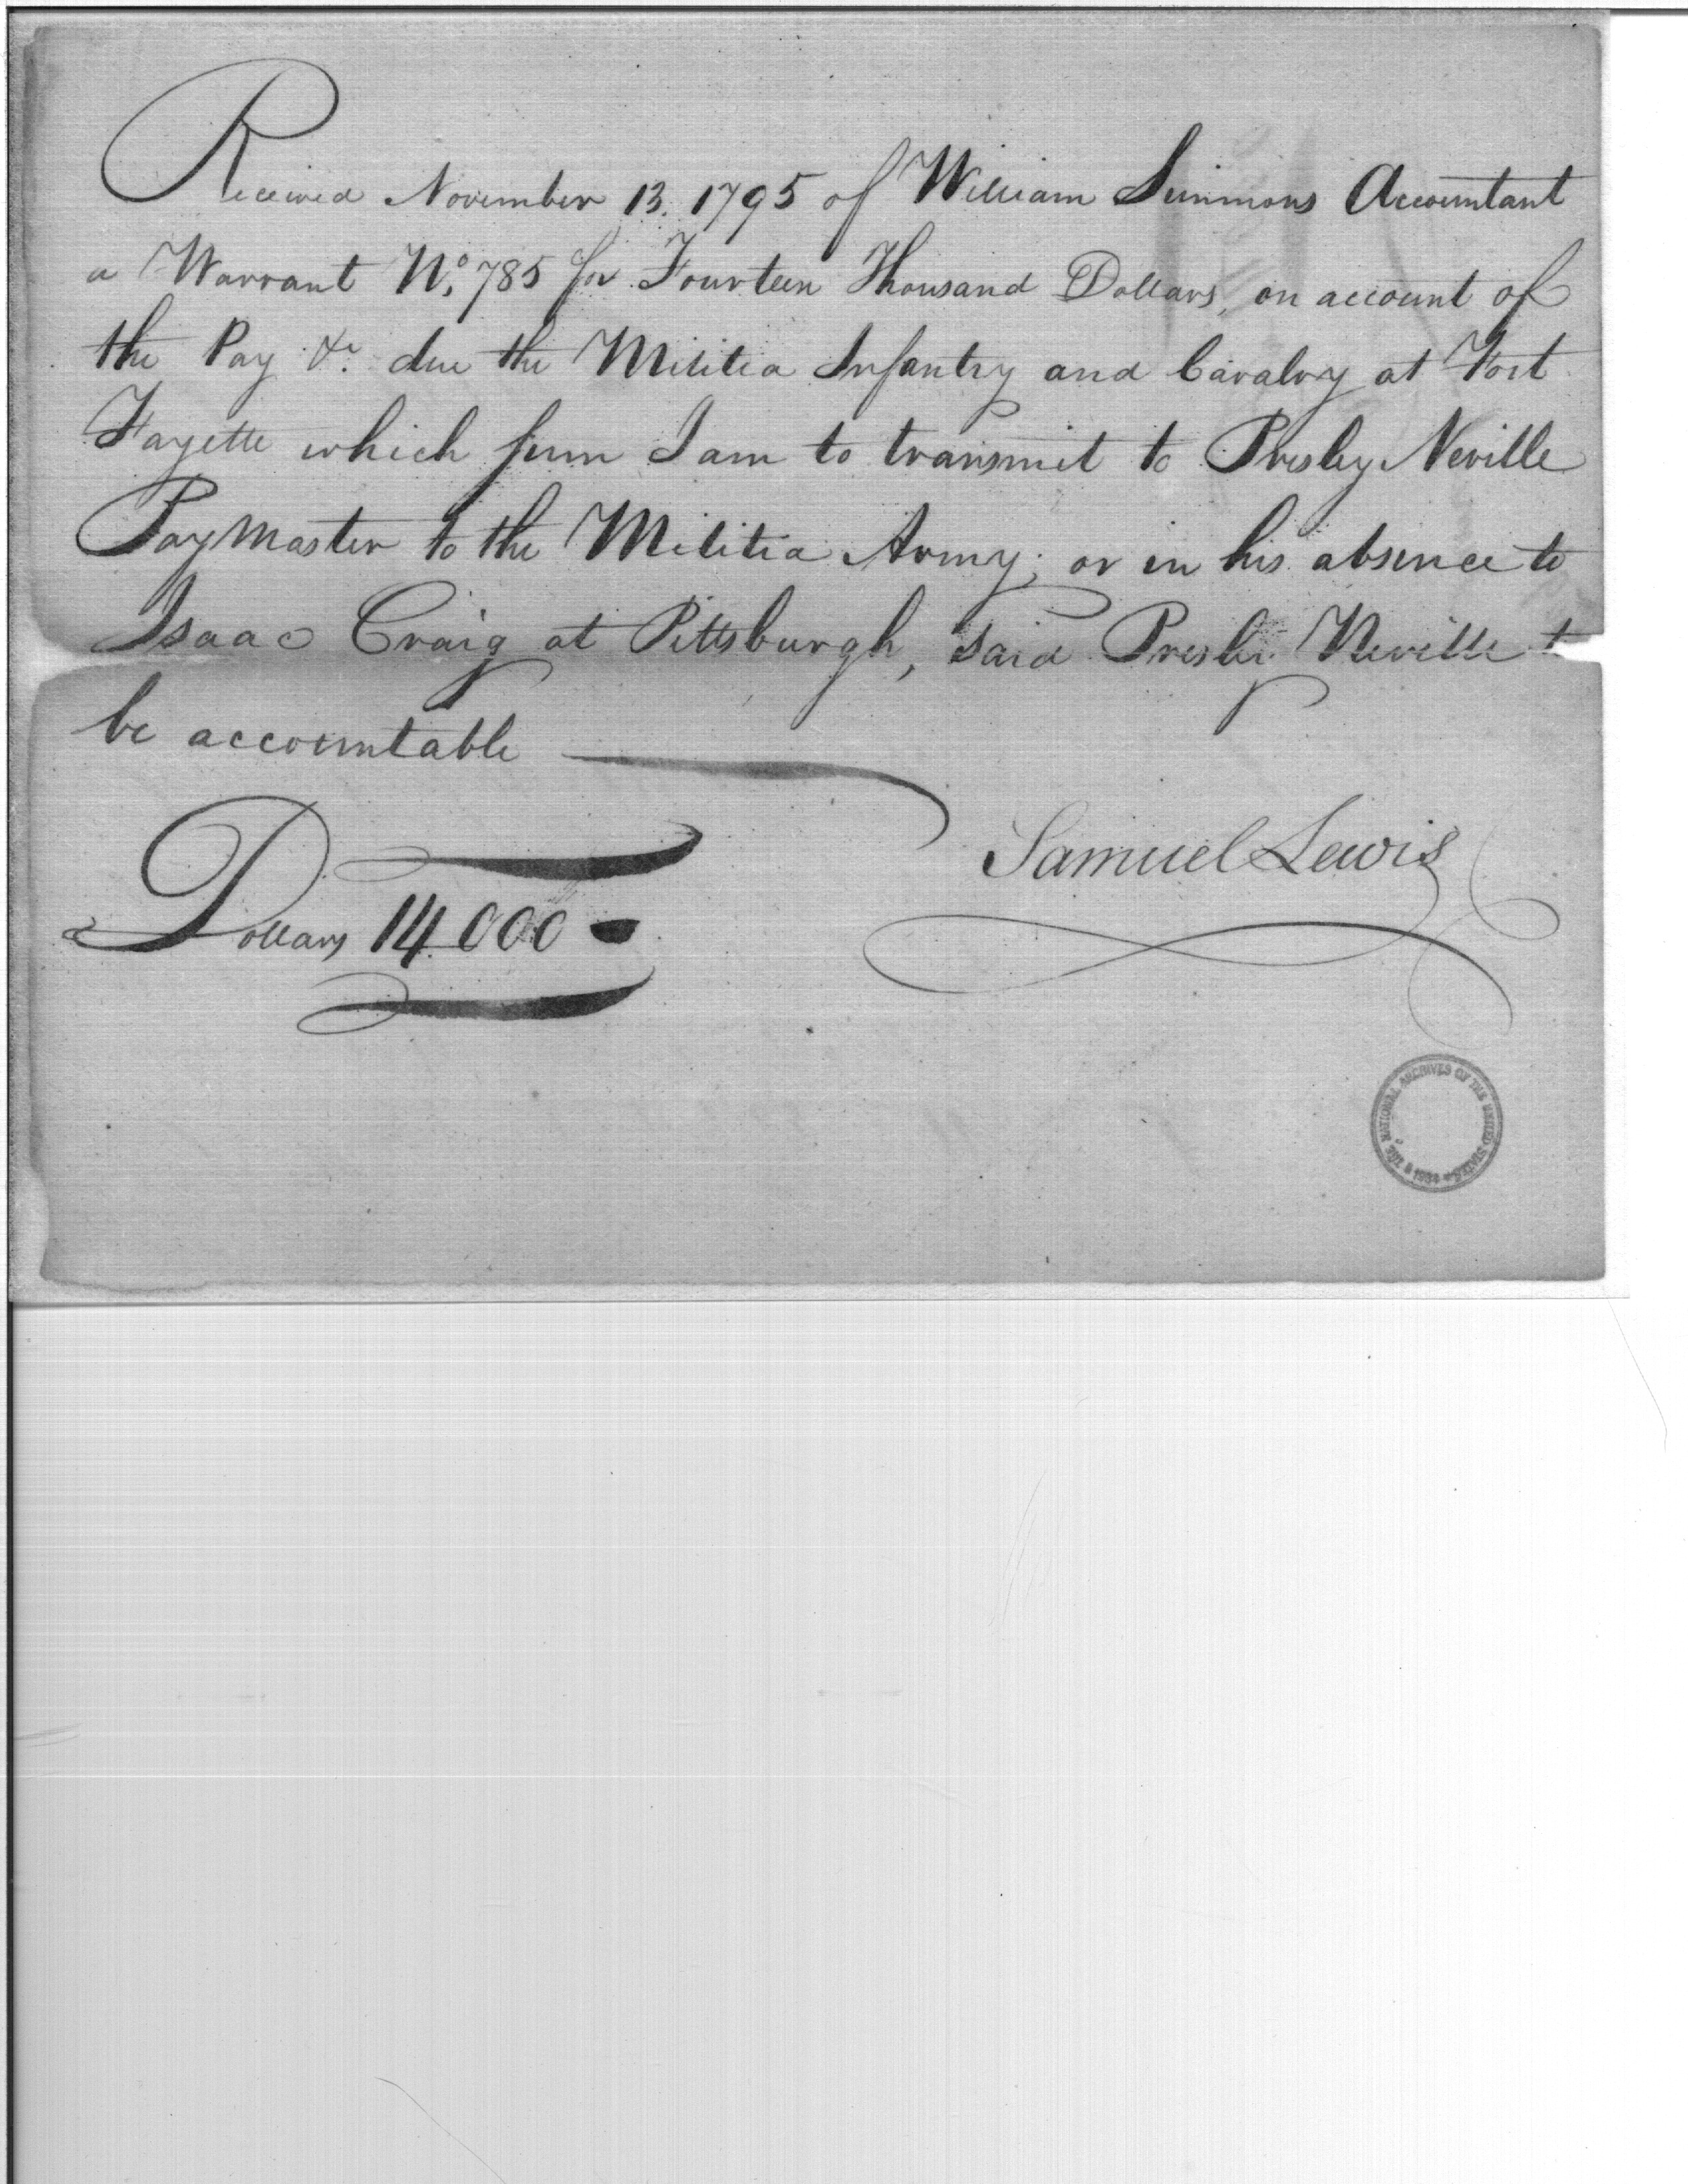 Received November 13. 1795 of William Simmons Accountant
a Warrant No. 785 for Fourteen Thousand Dollars, on account of
the Pay &c. due the Militia Infantry and Cavalry at Fort
Fayette which sum I am to transmit to Presley Neville
PayMaster to the Militia Army; or in his absence to
Isaac Craig at Pittsburgh, said Presley Neville to
be accountable
Dollars 14.000
Samuel Lewis
THE NATIONAL ARCHIVES OF THE UNITED STATES
1934